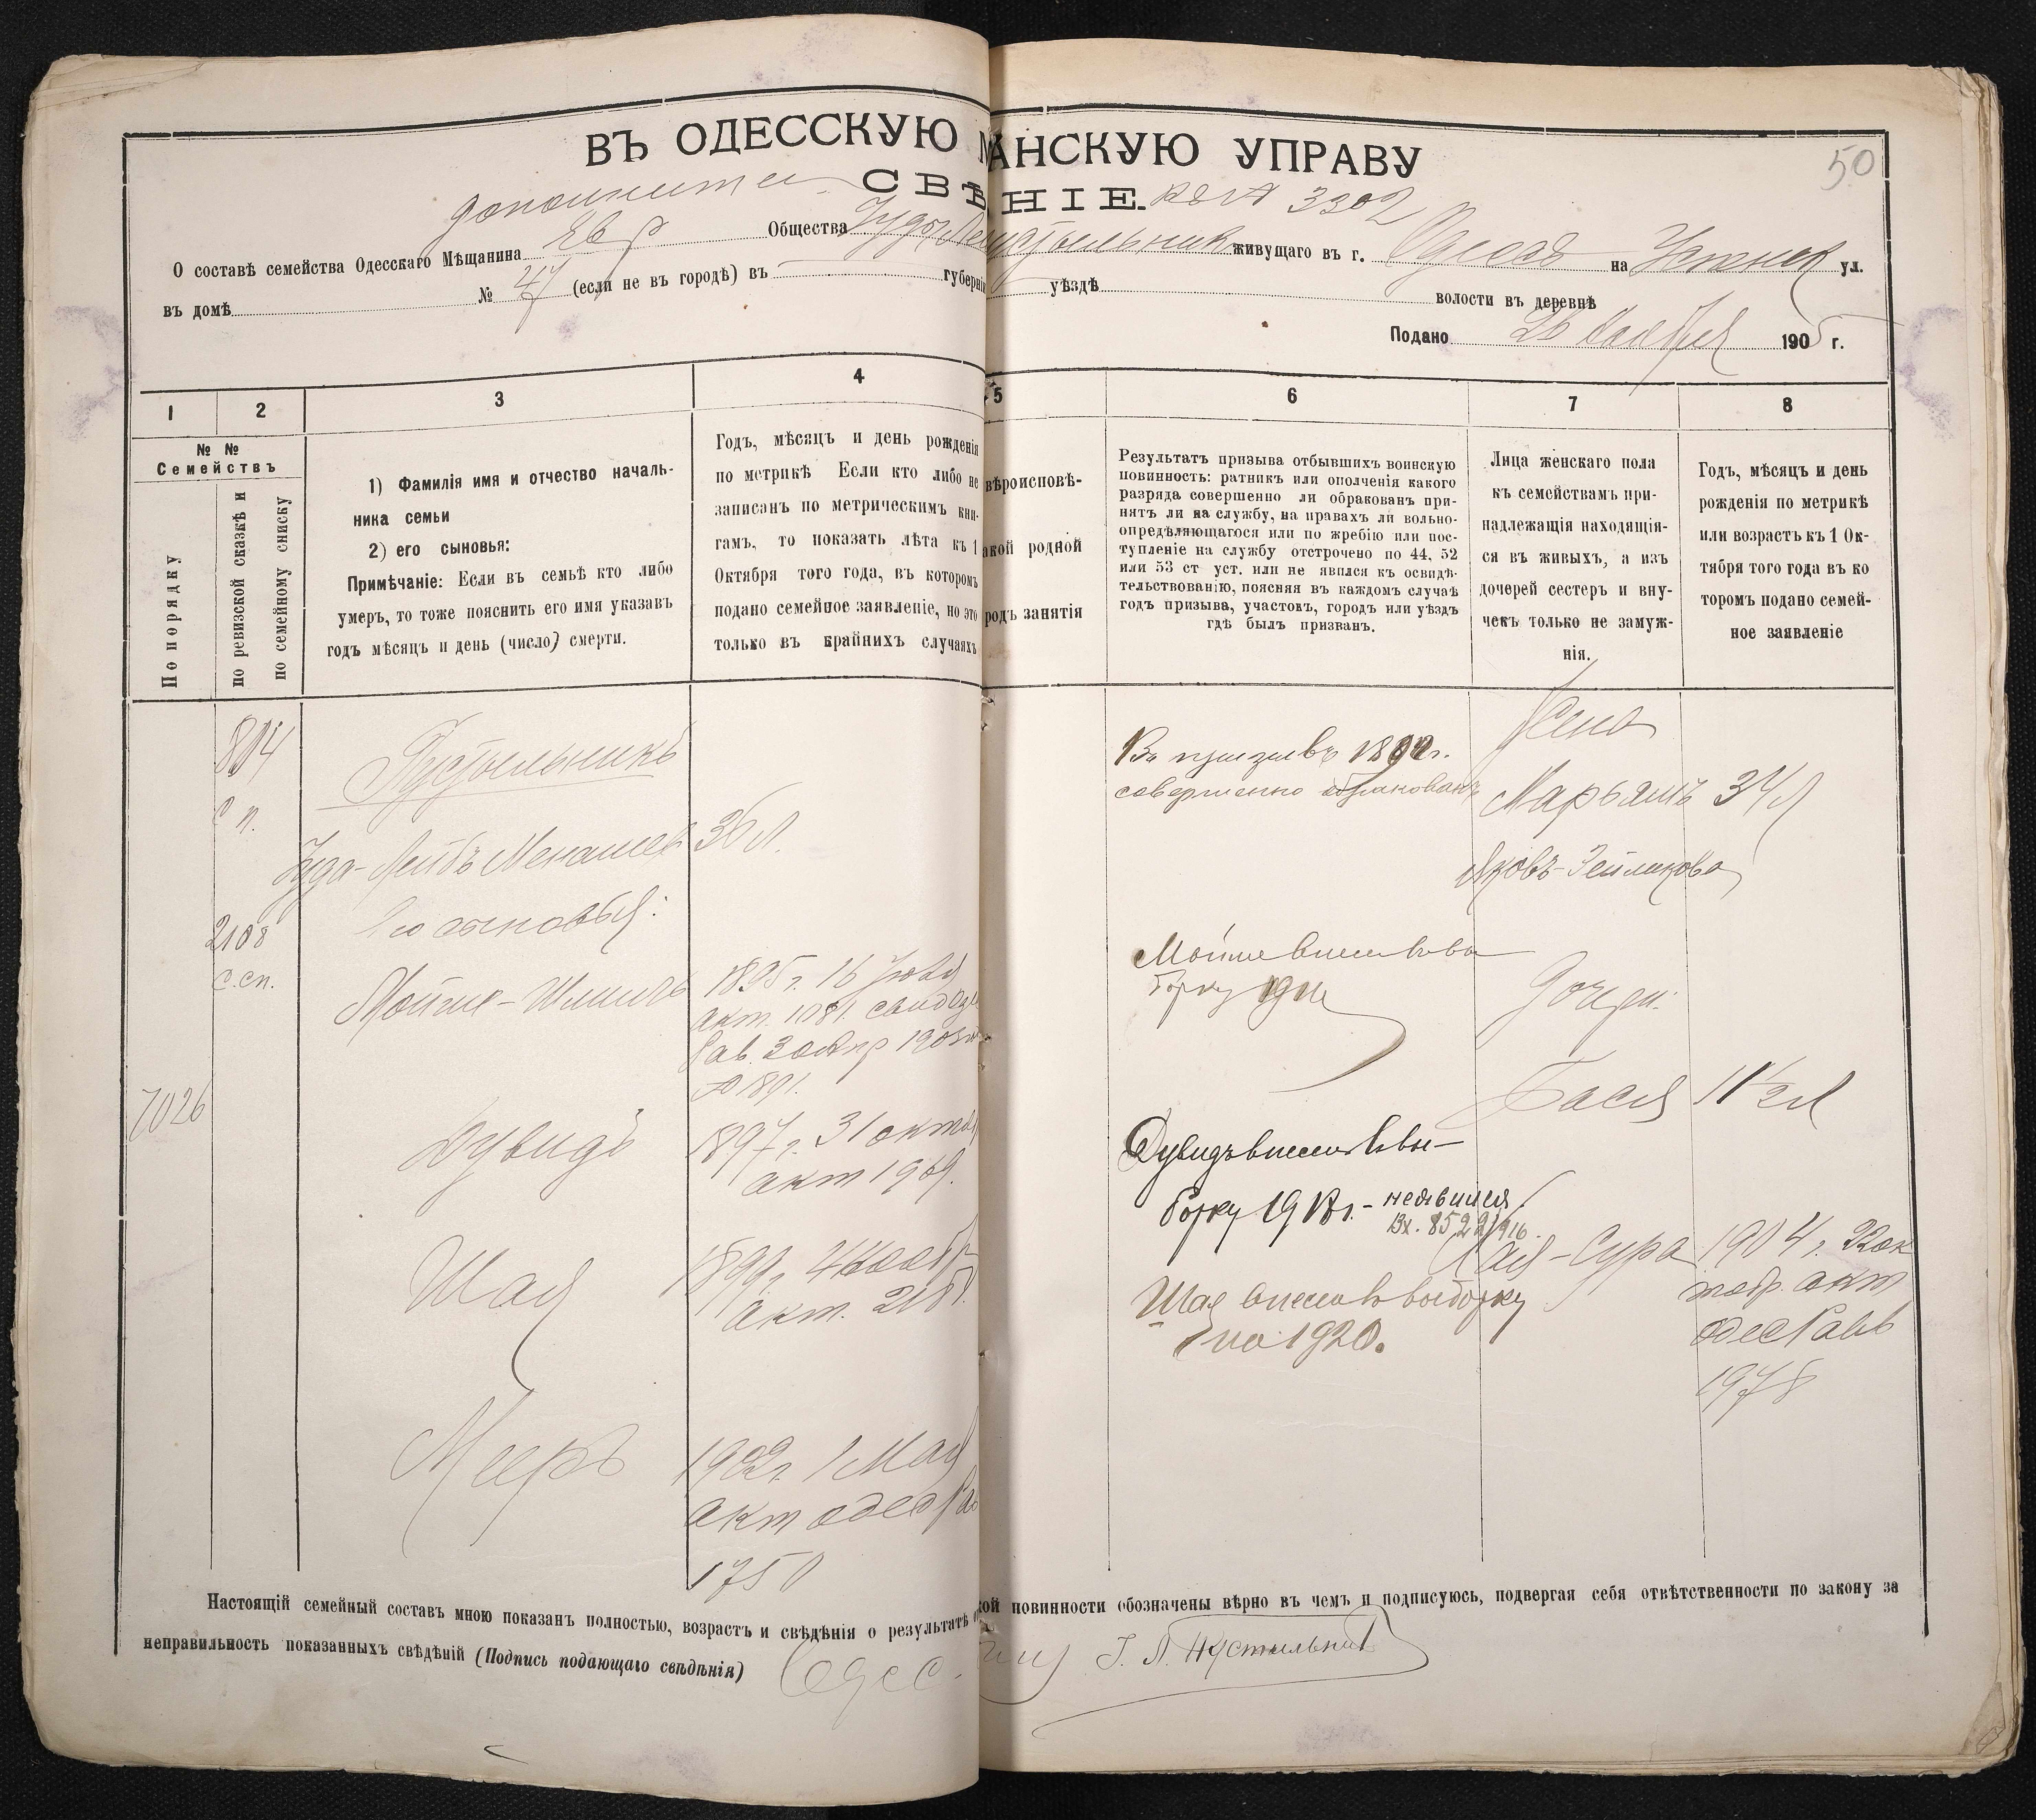 ВЪ ОДЕССКУЮ М АНСКУЮ УПРАВУ
50
СВѢ НІЕ. 3302
О составѣ семейства Одесскаго Мѣщанина Евр Общества Іуды Ле Пустыльник живущаго въ г. Одессѣ на Успенск ул.
въ домѣ № 47 (если не въ городѣ) въ губерні уѣздѣ волости въ деревнѣ
Подано 26 Ноября 1905 г.
1 2 3 4 5 6 7 8
№ №
Семействъ
По порядку
по ревизской сказкѣ и
по семейному списку
1) Фамилія имя и отчество началь-
ника семьи
2) его сыновья:
Примѣчаніе: Если въ семьѣ кто либо
умеръ, то тоже пояснить его имя указавъ
годъ мѣсяцъ и день (число) смерти.
Годъ, мѣсяцъ и день рожденія
по метрикѣ Если кто либо не
записанъ по метрическимъ кни-
гамъ, то показать лѣта къ 1
Октября того года, въ которомъ
подано семейное заявленіе, но это
только въ крайнихъ случаяхъ
вѣроисповѣ-
акой родной
родъ занятія
Результатъ призыва отбывшихъ воинскую
повинность: ратникъ или ополченія какого
разряда совершенно ли обракованъ при-
нятъ ли на службу, на правахъ ли вольно-
опредѣляющагося или по жребію или пос-
тупленіе на службу отстрочено по 44, 52
или 53 ст уст. или не явился къ освидѣ-
тельствованію, поясняя въ каждомъ случаѣ
годъ призыва, участокъ, городъ или уѣздъ
гдѣ былъ призванъ.
Лица женскаго пола
къ семействамъ при-
надлежащія находящія-
ся въ живыхъ, а изъ
дочерей сестеръ и вну-
чекъ только не замуж-
нія.
Годъ, мѣсяцъ и день
рожденія по метрикѣ
или возрастъ къ 1 Ок-
тября того года въ ко
торомъ подано семей-
ное заявленіе
804
с п.
Пустыльникъ
Іуда-Лейбъ Менашев 36 л.
Его сыновья:
2108
с.сп.
Мойше-Шлима 1895 г. 16 Іюля
акт. 1081.
7026
Дувидъ 1897 г. 31 октяб
акт 1969.
Шая 1899 г. 4 Нояб
акт.
Мееръ 1902 г. 1 Мая
акт одес Рав
1750
Въ призывѣ
совершенно обракованъ
Мойше внесен въ вы
борку
Дувидъ внесен въ вы-
борку - неявился
Вх. 8522/916.
Шая внесен въ выборку
на 1920.
Жена
Марьямъ 34 л
Яковъ-Зейликова
Дочери:
Бася 11½ л
Хая-Сура 1904 г. 22 ок
тябр. акт
одес Равв
1978
Настоящій семейный составъ мною показанъ полностью, возрастъ и свѣдѣнія о результатѣ кой повинности обозначены вѣрно въ чемъ и подписуюсь, подвергая себя отвѣтственности по закону за
неправильность показанныхъ свѣдѣній (Подпись подающаго свѣдѣнія) І. Л. Пустыльник